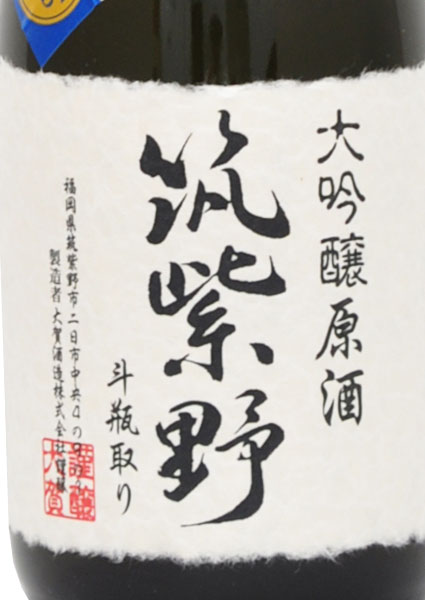 大吟醸原酒
筑紫野
斗瓶取り
福岡県筑紫野市二日市中央4の9の
製造者 大賀酒造株式会社謹醸
謹醸
大賀